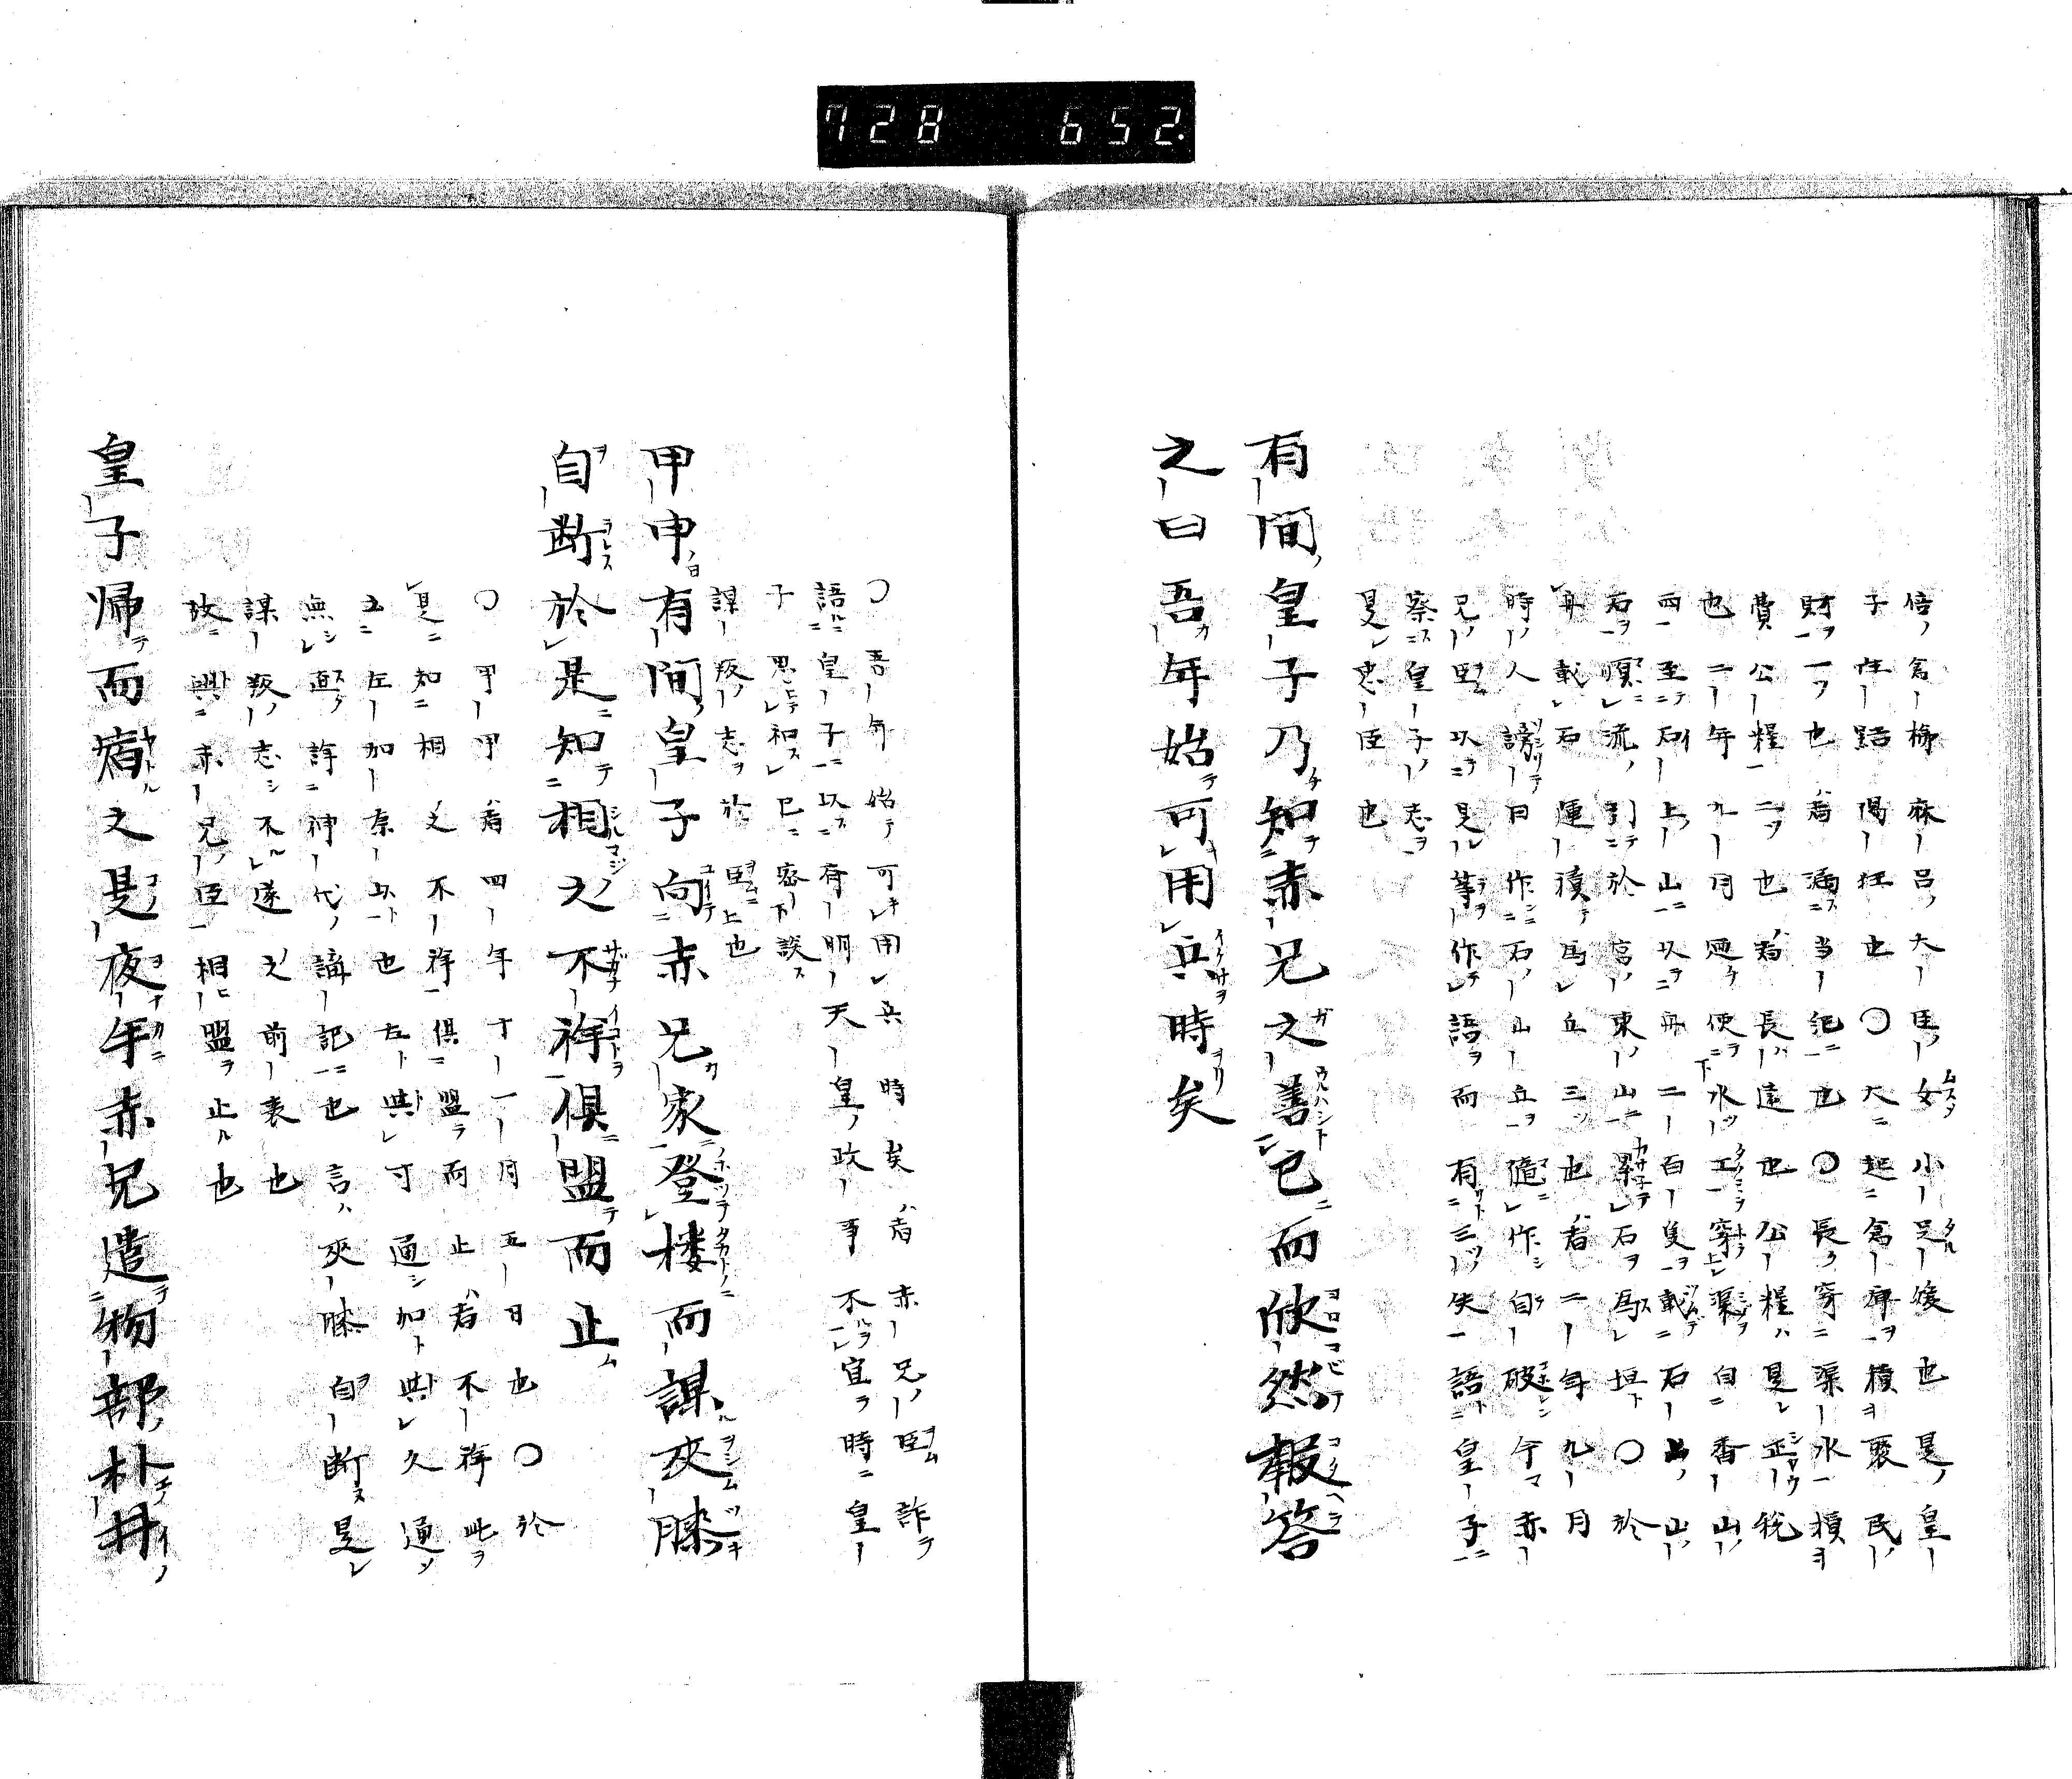 728 652.
倍ノ倉梯麻呂ノ大臣ノ女小足媛也是ノ皇
子性點陽狂也〇大ニ起ニ倉庫ヲ積ヲ聚民ノ
財ヲ一ツ也者涵ス当紀ニ也〇長ク穿ニ渠水一積ヲ
費公粮一二ツ也者長ハ遠也公粮ハ是レ正税
也二年九月廼チ使テ水工ヲ穿渠ヲ自ニ香山ノ
西至テ石上ノ山ニ以ヲ舟二百隻ヲ載石上ノ山ノ
石ヲ順レ流ノ引テ於宮ノ東ノ山ニ累レ石ヲ為レ垣ト〇於
舟載石運積テ為レ丘三ツ也者二年九月
時ノ人謗テ曰作ニ石ノ山丘ヲ随レ作シ自破レン今マ赤
兄ノ臣以ヲ是レ等ヲ作テ語ヲ而有ト三ツノ失一語ト皇子ニ
察ス皇子ノ志ヲ
是レ忠臣也
有間ノ皇子乃チ知テ赤兄之善已ニ而欣然報答
之曰吾カ年始テ可キ用レ兵時矣
〇吾年始テ可キ用レ兵時矣ハ者赤兄ノ臣詐テ
語ルニ皇子ニ以ス有明天皇ノ政事不ルヲ宜ラ時ニ皇
子思テ和スレ已ニ密ニ談ス
謀叛ノ志ヲ於臣上也
甲申ノ日有間ノ皇子向テ赤兄カ家ニ登テ楼而謀夾膝
自断於是ニ知テ相之不祥倶ニ盟テ而止ム
〇甲甲ハ者四年十一月五日也〇於
是ニ知ニ相之不祥一倶ニ盟ヲ而止ハ者不祥此ヲ
五ニ左加奈以ト也左ト與レ寸通シ加ト與レ久通ソ
無シレ適ク詳ニ神代ノ講記ニ也言ハ夾膝自ヲ断ス是レ
謀叛ノ志シ不ルレ遂之ノ前表也
故ニ與ニ赤兄ノ臣一相ヒ盟ヲ止ル也
皇子帰テ而宿之是夜半赤兄遣テ物部ノ朴井ノ